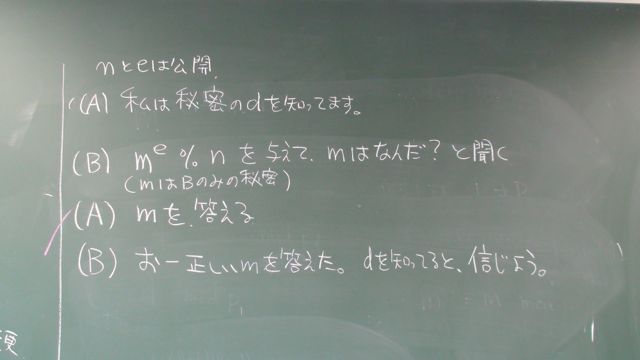 nとeは公開
(A) 私は秘密のdを知ってます。
(B) m^e % n を与えて、mはなんだ?と聞く
(mはBのみの秘密)
(A) mを答える
(B) おー正しいmを答えた。dを知ってると、信じよう。